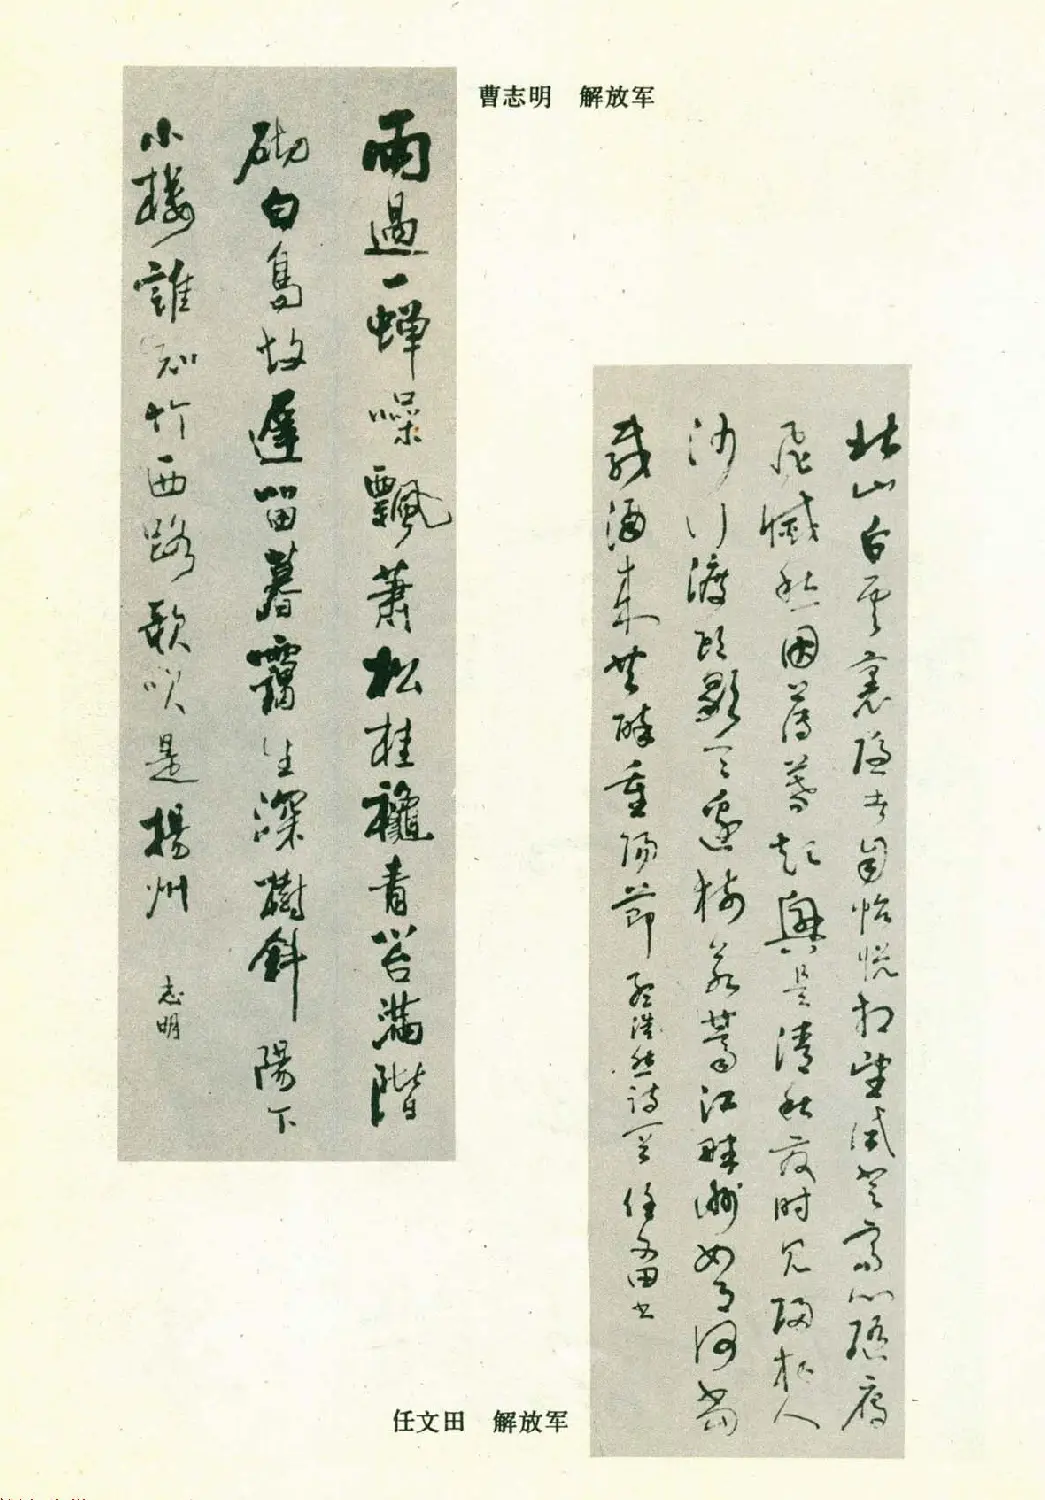 曹志明　解放军
雨過一蝉噪飄蕭松桂龝青苔滿階
砌白鳥故遲留暮靄生深樹斜陽下
小楼誰知竹西路歌吹是揚州
志明
北山白云裏隱者自怡悦相望试登高心隱雁
飛滅愁因薄暮起興是清秋發时见歸村人
沙行渡頭歇天邊樹若薺江畔洲如月何當
載酒来共醉重陽節 孟浩然诗一首 任文田书
任文田　解放军